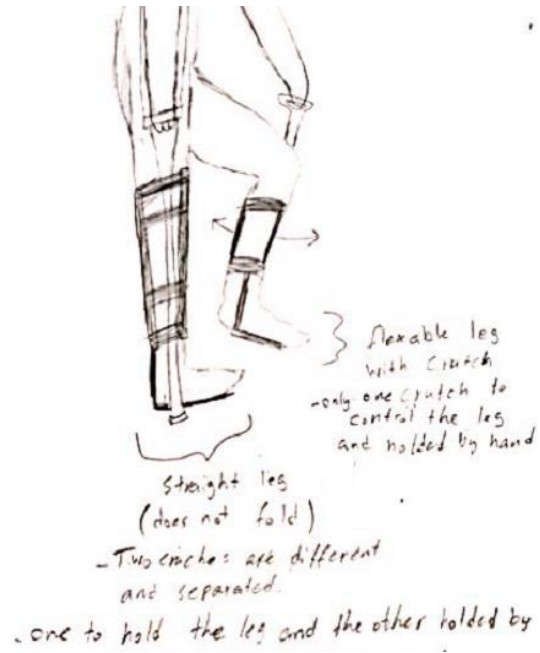 flexable leg
with Crutch
-only one crutch to
control the leg
and holded by hand
straight leg
(does not fold)
-Two are different
and separated.
- one to hold the leg and the other holded by